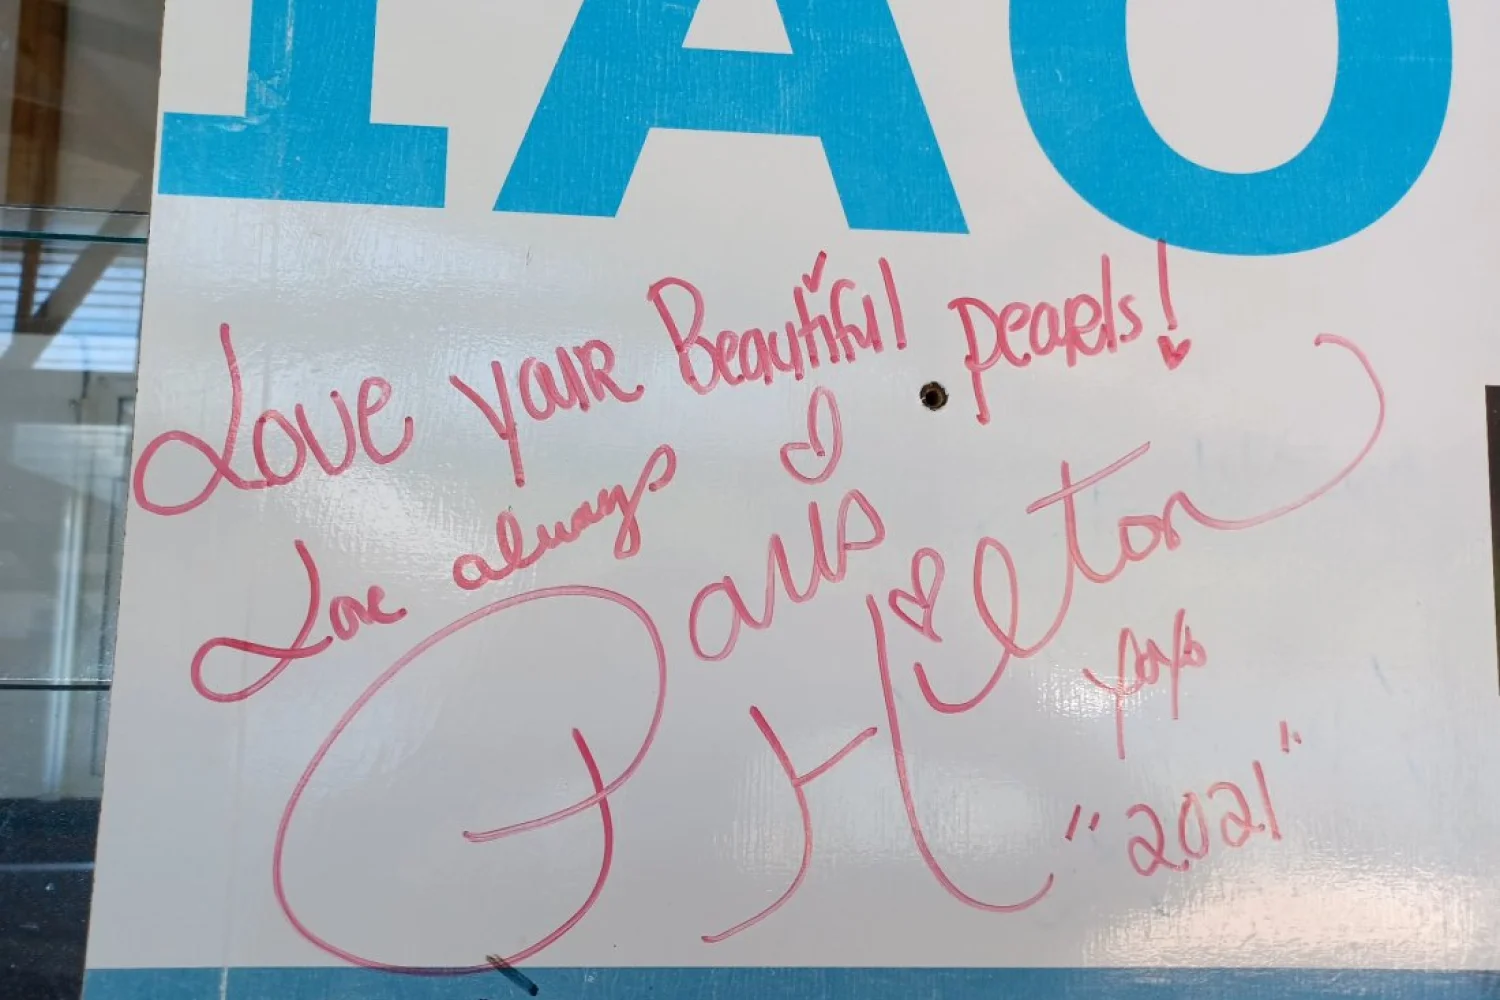 IAO
Love your Beautiful pearls!
Love always
Paris
Hilton
xoxo
"2021"